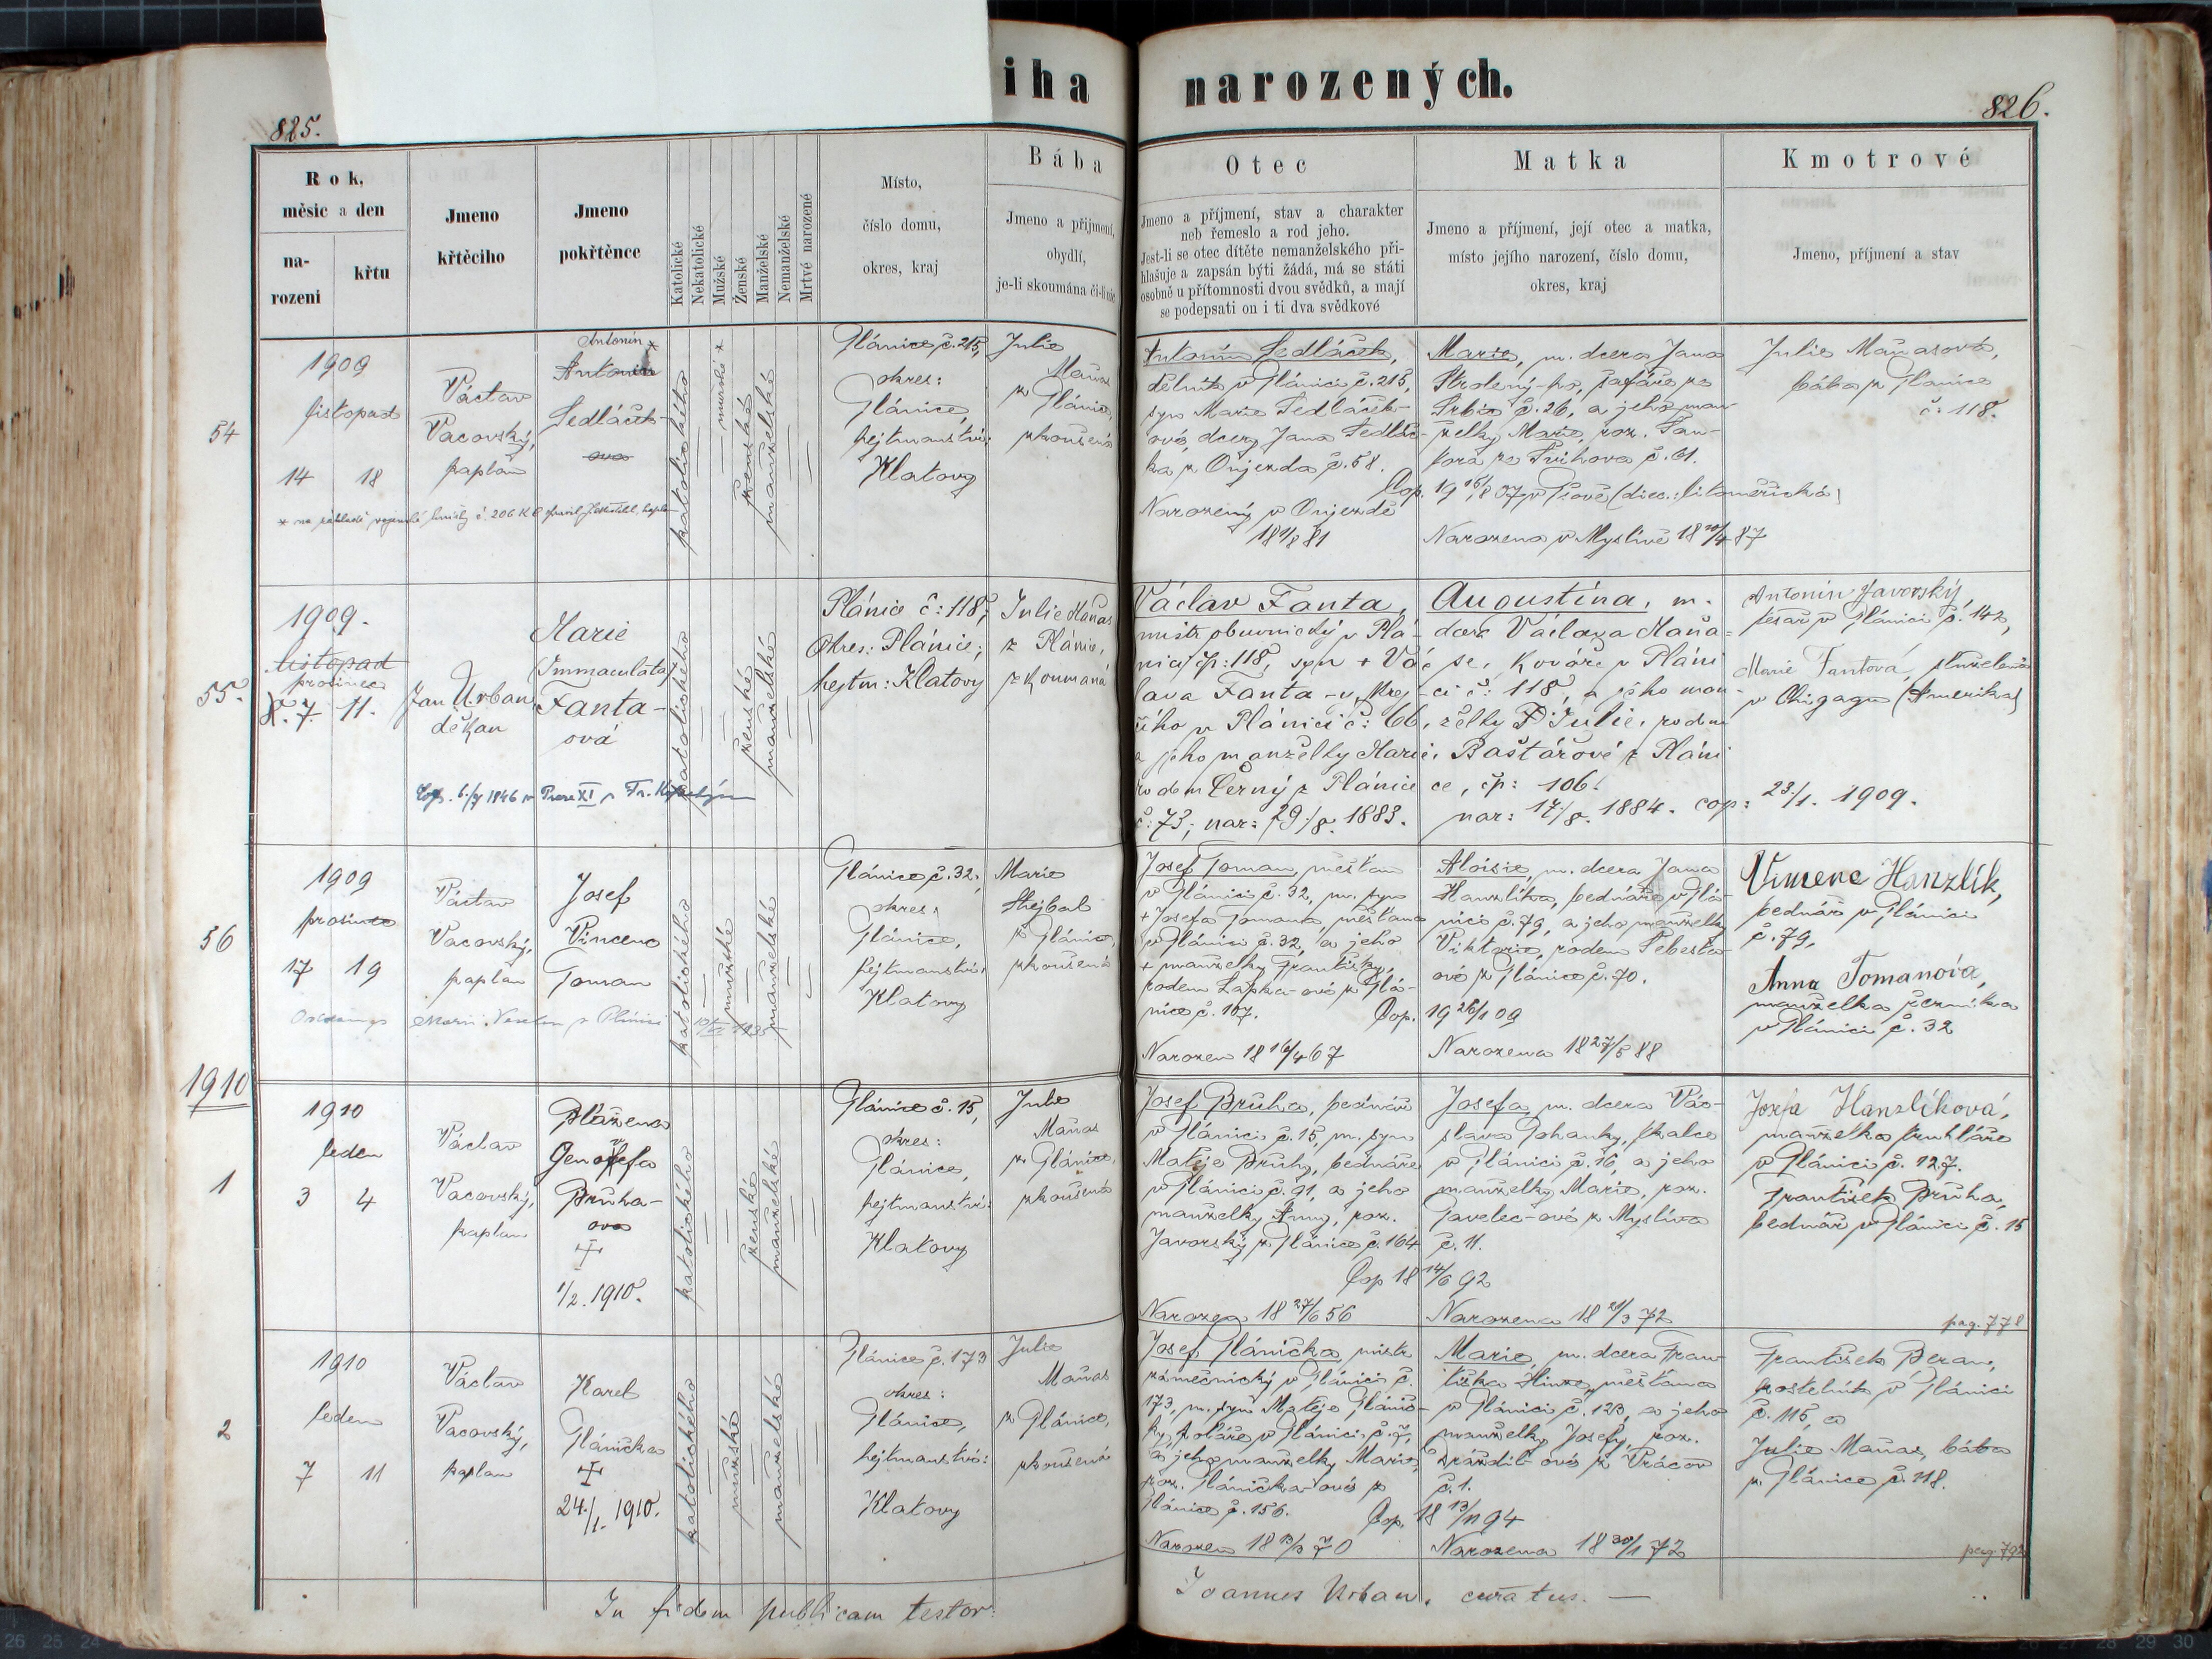 iha narozených.
825.
826.
Rok, měsíc a den
narozeni
křtu
Jmeno křtěcího
Jmeno pokřtěnce
Katolické
Nekatolické
Mužské
Ženské
Manželské
Nemanželské
Mrtvé narozené
Místo,
číslo domu,
okres, kraj
Bába
Jmeno a příjmení,
obydlí,
je-li skoumána či-li nic
Otec
Jmeno a příjmení, stav a charakter
neb řemeslo a rod jeho.
Jest-li se otec dítěte nemanželského při-
hlašuje a zapsán býti žádá, má se státi
osobně u přítomnosti dvou svědků, a mají
se podepsati on i ti dva svědkové
Matka
Jmeno a příjmení, její otec a matka,
místo jejího narození, číslo domu,
okres, kraj
Kmotrové
Jmeno, příjmení a stav
54
1909
listopad
14 18
Václav
Vacovský,
kaplan
Antonín *
Antonín
Sedláček
ova
katolického
mužské *
ženské
manželské
Plánice č. 215,
okres:
Plánice,
hejtmanství:
Klatovy
Julie
Maňas
z Plánice,
zkoušená
Antonín Sedláček,
dělník v Plánici č. 215,
syn Marie Sedláček-
ové, dcery Jana Sedláč-
ka z Onjezda č. 58.
Narozený v Onjezdě
18 1/8 81
Marie, m. dcera Jana
Srbic č. 26, a jeho man-
želky Marie, roz.
Narozena v Myslívě 18 20/4 87
Julie Maňasová,
bába z Plánice
č. 118.
55.
1909.
listopad
prosinec
7. 11.
Jan Urban,
děkan
Marie
Immaculata
Fanta-
ová
katolického
ženské
manželské
Plánice č: 118,
Okres: Plánice;
hejtm: Klatovy
Julie Maňas
z Plánic,
zkoumaná
Václav Fanta,
mistr obuvnický v Plá-
nici čp: 118, syn + Vác
lava Fanta-y, krej-
čího v Plánici č: 66,
a jeho manželky Marie,
rodem Černý z Plánice
č: 73; nar: 29/8. 1883.
Augustina, m.
dcera Václava Maňa-
se, kováře v Pláni
ci č: 118, a jeho man-
želky Julie, rodem
Baštářové z Pláni
ce, čp: 106.
nar: 17/8. 1884. cop: 23/1. 1909.
Antonín Javorský,
tesař v Plánici č. 142,
Marie Fantová,
v Chigagu (Amerika)
56
1909
prosinec
17 19
Václav
Vacovský,
kaplan
Josef
Vincenc
Toman
katolického
mužské
manželské
Plánice č. 32,
okres:
Plánice,
hejtmanství:
Klatovy
Marie
Hejbal
z Plánice,
zkoušená
Josef Toman, měšťan
v Plánici č. 32, m. syn
+ Josefa Tomana, měšťana
v Plánici č. 32, a jeho
+ manželky Františky,
rodem Lapka-ové z Plá-
nice č. 107.
Cop. 19 26/1 09
Narozen 18 16/4 67
Aloisie, m. dcera Jana
Hanzlíka, bednáře v Plá-
nici č. 79, a jeho manželky
Viktorie, rodem Šebesta-
ové z Plánice č. 70.
Narozena 18 27/5 88
Vincenc Hanzlík,
bednář v Plánici
č. 79,
Anna Tomanová,
manželka
v Plánici č. 32
1910
1
1910
leden
3 4
Václav
Vacovský,
kaplan
Blažena
Genovefa
Brůha-
ova
+
1/2. 1910.
katolického
ženské
manželské
Plánice č. 15,
okres:
Plánice,
hejtmanství:
Klatovy
Julie
Maňas
z Plánice,
zkoušená
Josef Brůha, bednář
v Plánici č. 15, m. syn
Matěje Brůhy, bednáře
v Plánici č. 91, a jeho
manželky Anny, roz.
Javorský z Plánice č. 164
Cop 18 14/6 92
Narozen 18 27/6 56
Josefa, m. dcera Vác-
slava Pohanky, tkalce
v Plánici č. 16, a jeho
manželky Marie, roz.
Pavelec-ové z Myslíva
č. 11.
Narozena 18 21/3 72
Josefa Hanzlíková,
manželka truhláře
v Plánici č. 127.
František Brůha,
bednář v Plánici č. 15
pag. 778
2
1910
leden
7 11
Václav
Vacovský,
kaplan
Karel
Plánička
+
24./1. 1910.
katolického
mužské
manželské
Plánice č. 173
okres:
Plánice,
hejtmanství:
Klatovy
Julie
Maňas
z Plánice,
zkoušená
Josef Plánička, mistr
zámečnický v Plánici č.
173, m. syn Matěje Plánič-
ky, koláře v Plánici č. 7,
a jeho manželky Marie,
roz. Plánička-ové z
Plánice č. 156.
Cop. 18 13/11 94
Narozen 18 13/3 70
Marie, m. dcera Fran-
tiška Hinze, měšťana
v Plánici č. 123, a jeho
manželky Josefy, roz.
Vrácov
č. 1.
Narozena 18 30/1 72
František Beran,
kostelník v Plánici
č. 115, a
Julie Maňas, bába
z Plánice č. 118.
pag. 792
In fidem publicam testor:
Joannes Urban, curatus.